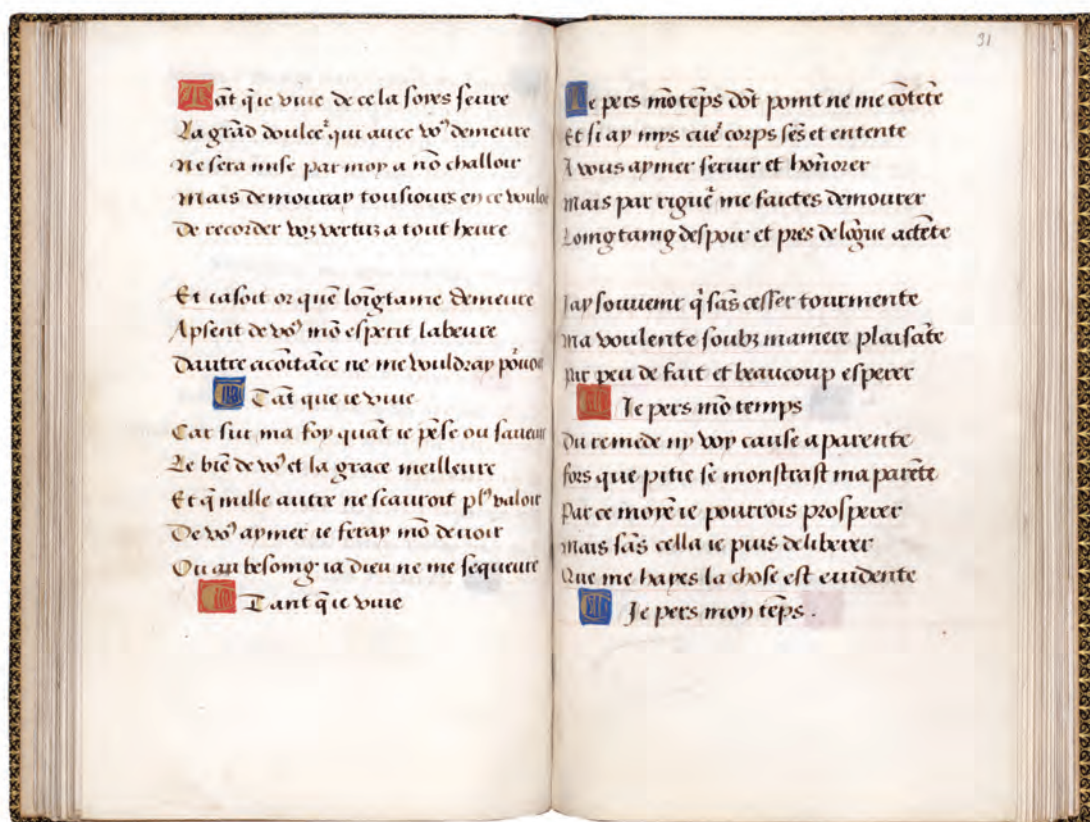 Tãt q̃ ie viue de ce la sores seure
La grãd doulceᵣ qui auec voꝰ demeure
Ne sera mise par moy a nõ challoir
Mais demouray tousiours en ce vouloi
De recorder voz vertuz a tout heure
Et ia soit or quẽ loĩgtaine demeure
Apsent de voꝰ mõ esperit labeure
Dautre acoĩtãce ne me vouldray põuoi
Tãt que ie viue
Car sur ma foy quãt ie pẽse ou saueur
Le biẽ de voꝰ et la grace meilleure
Et q̃ mille autre ne scauroit plꝰ valoir
De voꝰ aymer ie feray mõ deuoir
Ou au besoing ia dieu ne me sequeure
Tant q̃ ie viue
31
Ie pers mõ tẽps dõt point ne me cõtẽte
Et si ay mys cueᵣ corps sẽs et entente
A vous aymer seruir et hõnorer
Mais par rigueᵣ me faictes demourer
Loing taing despoir et pres de lõgue actẽte
Iay souuenir q̃ sãs cesser tourmente
Ma voulente soubz maniere plaisãte
Pir peu de fait et beaucoup esperer
Je pers mõ temps
Du remede ny voy cause aparente
Fors que pitie se monstrast ma parẽte
Par ce moyẽ ie pourrois prosperer
Mais sãs cella ie puis deliberer
Que me hayes la chose est euidente
Je pers mon tẽps.